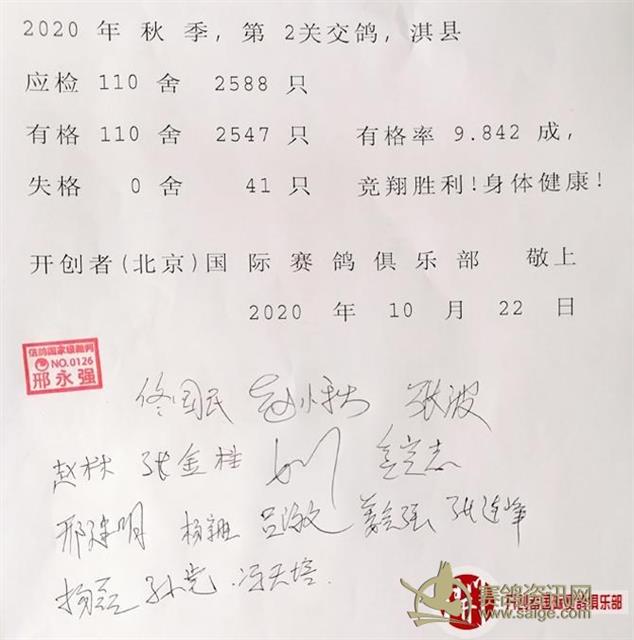 2020 年 秋 季, 第 2关交鸽, 淇县
应检 110 舍 2588 只
有格 110 舍 2547 只 有格率 9.842 成,
失格 0 舍 41 只 竞翔胜利!身体健康!
开创者(北京)国 际 赛 鸽 俱 乐 部 敬上
2020 年 10 月 22 日
信鸽国家级裁判
NO.0126
邢永强
佟国民 赵小秋 张波
赵林 张金柱 志
邢建明 杨 吕敏 强 张连峰
杨磊 孙光 冯天培
赛鸽资讯网
www.saige.com
开创者国际赛鸽俱乐部